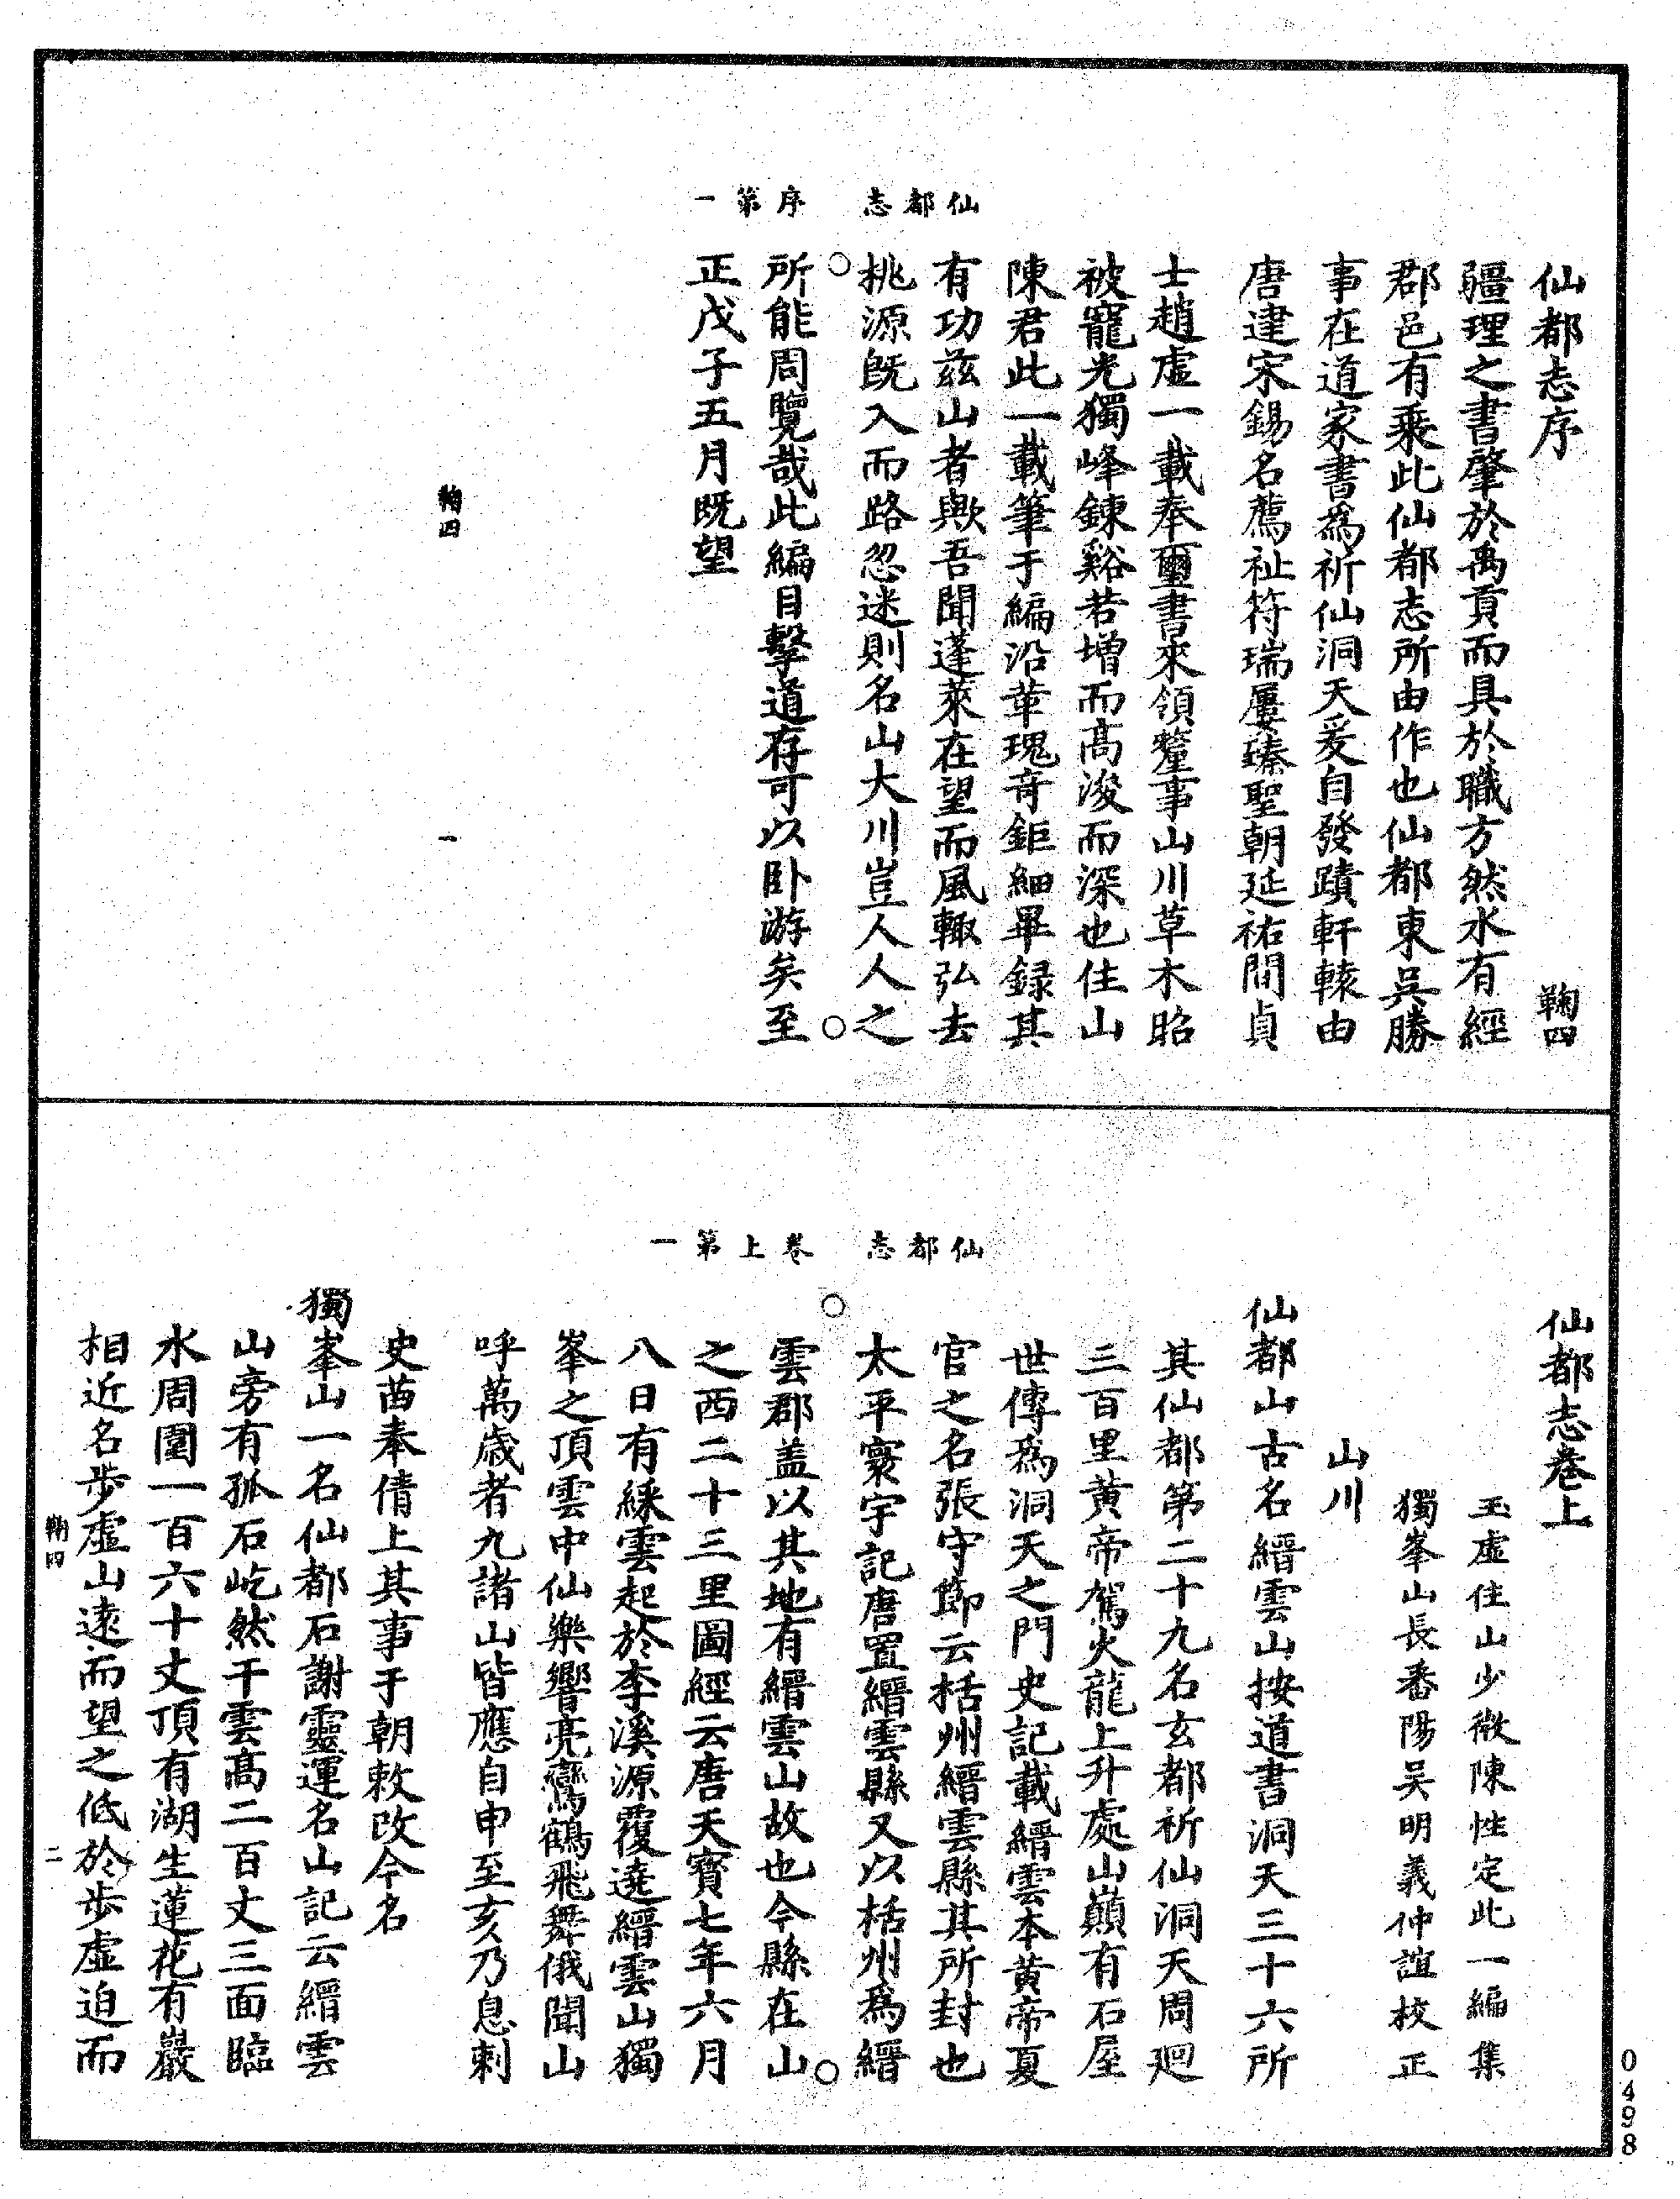 仙都志序
鞠四
疆理之書肇於禹貢而具於職方然水有經
郡邑有乘此仙都志所由作也仙都東吳勝
事在道家書為祈仙洞天爰自發蹟軒轅由
唐建宋錫名薦祉符瑞屢臻聖朝延祐間貞
士趙虛一載奉璽書來領釐事山川草木昭
被寵光獨峰鍊谿若增而高浚而深也住山
陳君此一載筆于編沿革瑰奇鉅細畢録其
有功兹山者歟吾聞蓬萊在望而風輙弘去
仙都志 序第一
桃源旣入而路忽迷則名山大川豈人人之
所能周覽哉此編目擊道存可以卧游矣至
正戊子五月既望
鞠四 一
仙都志卷上
玉虛住山少微陳性定此一編集
獨峯山長番陽吴明義仲誼校正
山川
仙都山古名縉雲山按道書洞天三十六所
其仙都第二十九名玄都祈仙洞天周廻
三百里黄帝駕火龍上升處山巔有石屋
世傳為洞天之門史記載縉雲本黄帝夏
官之名張守節云括州縉雲縣其所封也
太平寰宇記唐置縉雲縣又以括州爲縉
仙都志 卷上第一
雲郡盖以其地有縉雲山故也今縣在山
之西二十三里圖經云唐天寳七年六月
八日有綵雲起於李溪源覆遶縉雲山獨
峯之頂雲中仙樂響亮鸞鶴飛舞俄聞山
呼萬歲者九諸山皆應自申至亥乃息刺
史苖奉倩上其事于朝敕改今名
獨峯山一名仙都石謝靈運名山記云縉雲
山旁有孤石屹然干雲高二百丈三面臨
水周圍一百六十丈頂有湖生蓮花有巖
相近名步虛山遠而望之低於步虛迫而
鞠四 二
0498